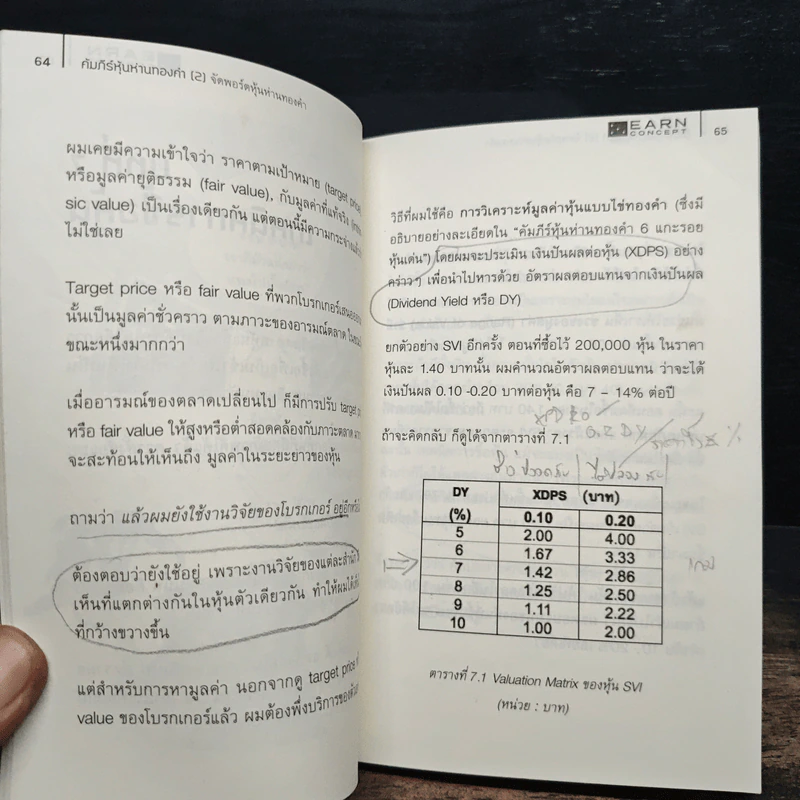 64
คัมภีร์หุ้นห่านทองคำ (2) จัดพอร์ตหุ้นห่านทองคำ
ผมเคยมีความเข้าใจว่า ราคาตามเป้าหมาย (target price)
หรือมูลค่ายุติธรรม (fair value), กับมูลค่าที่แท้จริง
sic value) เป็นเรื่องเดียวกัน แต่ตอนนี้มีความกระจ่างแล้วว่า
ไม่ใช่เลย
Target price หรือ fair value ที่พวกโบรกเกอร์เสนอออกมา
นั้นเป็นมูลค่าชั่วคราว ตามภาวะของอารมณ์ตลาด
ขณะหนึ่งมากกว่า
เมื่ออารมณ์ของตลาดเปลี่ยนไป ก็มีการปรับ target
หรือ fair value ให้สูงหรือต่ำสอดคล้องกับภาวะตลาด
จะสะท้อนให้เห็นถึง มูลค่าในระยะยาวของหุ้น
ถามว่า แล้วผมยังใช้งานวิจัยของโบรกเกอร์ อยู่อีกหรือ
ต้องตอบว่ายังใช้อยู่ เพราะงานวิจัยของแต่ละสำนัก
เห็นที่แตกต่างกันในหุ้นตัวเดียวกัน ทำให้ผม
ที่กว้างขวางขึ้น
แต่สำหรับการหามูลค่า นอกจากดู target price
value ของโบรกเกอร์แล้ว ผมต้องพึ่งบริการของ
EARN
CONCEPT
65
วิธีที่ผมใช้คือ การวิเคราะห์มูลค่าหุ้นแบบไข่ทองคำ (ซึ่งมี
อธิบายอย่างละเอียดใน "คัมภีร์หุ้นห่านทองคำ 6 แกะรอย
หุ้นเด่น") โดยผมจะประเมิน เงินปันผลต่อหุ้น (XDPS) อย่าง
คร่าวๆ เพื่อนำไปหารด้วย อัตราผลตอบแทนจากเงินปันผล
(Dividend Yield หรือ DY)
ยกตัวอย่าง SVI อีกครั้ง ตอนที่ซื้อไว้ 200,000 หุ้น ในราคา
หุ้นละ 1.40 บาทนั้น ผมคำนวณอัตราผลตอบแทน ว่าจะได้
เงินปันผล 0.10 -0.20 บาทต่อหุ้น คือ 7 – 14% ต่อปี
ถ้าจะคิดกลับ ก็ดูได้จากตารางที่ 7.1
DY XDPS (บาท)
(%) 0.10 0.20
5 2.00 4.00
6 1.67 3.33
7 1.42 2.86
8 1.25 2.50
9 1.11 2.22
10 1.00 2.00
ตารางที่ 7.1 Valuation Matrix ของหุ้น SVI
(หน่วย : บาท)